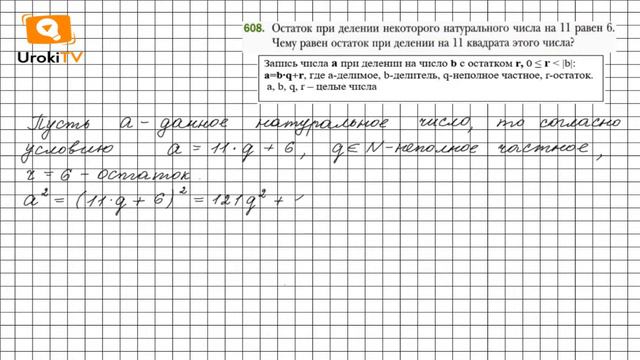 UrokiTV
608. Остаток при делении некоторого натурального числа на 11 равен 6.
Чему равен остаток при делении на 11 квадрата этого числа?
Запись числа a при делении на число b с остатком r, 0 ≤ r < |b|:
a=b·q+r, где a-делимое, b-делитель, q-неполное частное, r-остаток.
a, b, q, r – целые числа
Пусть a - данное натуральное число, то согласно
условию a = 11·q + 6, q∈N - неполное частное,
r = 6 - остаток.
a² = (11·q + 6)² = 121q² +